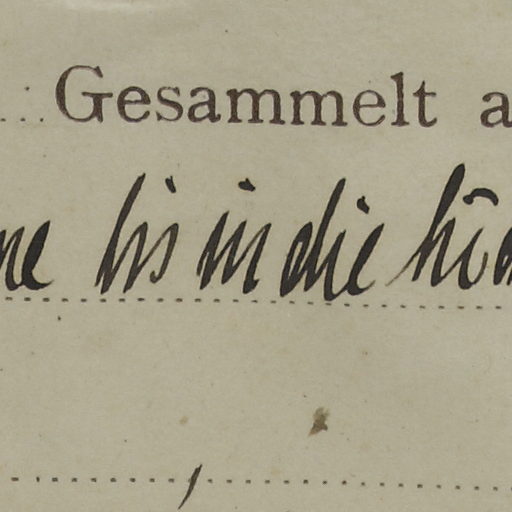 Gesammelt a
ne bis in die